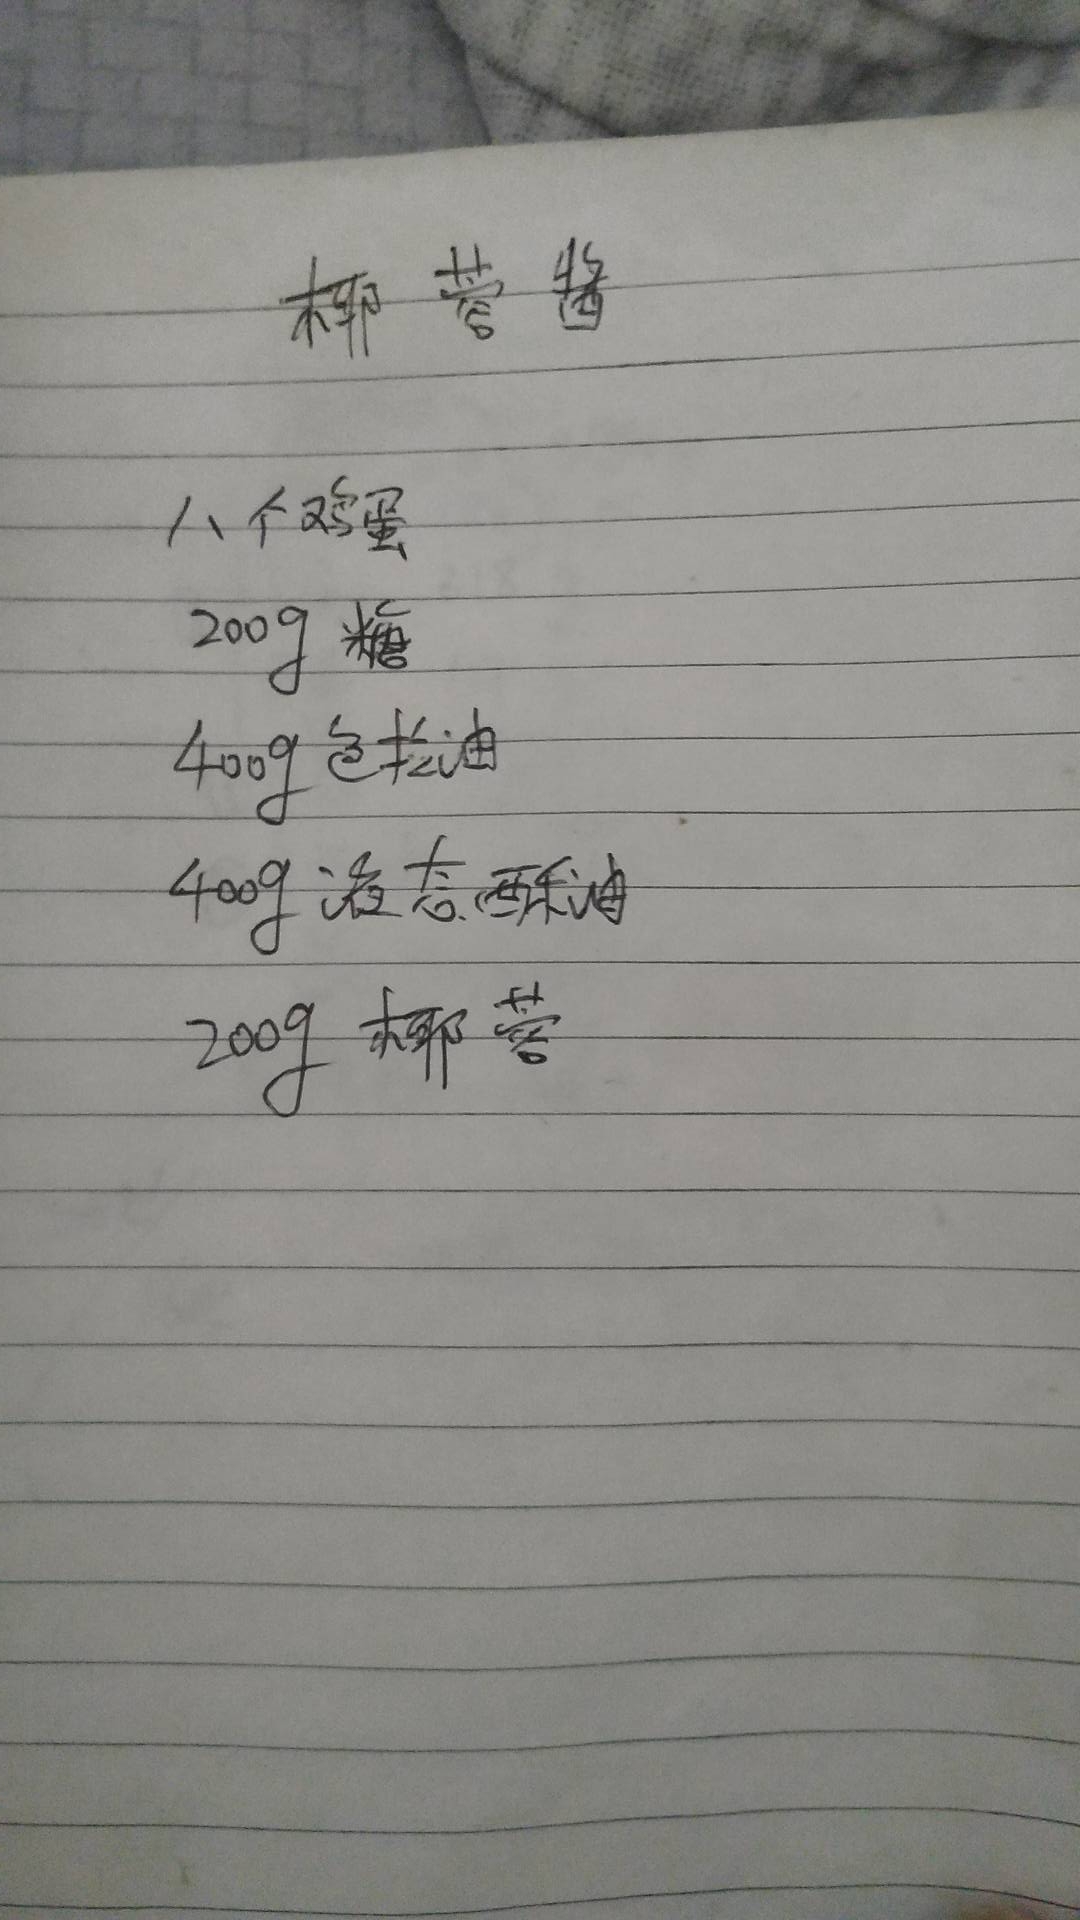 椰蓉酱
八个鸡蛋
200g 糖
400g 色拉油
400g 液态酥油
200g 椰蓉